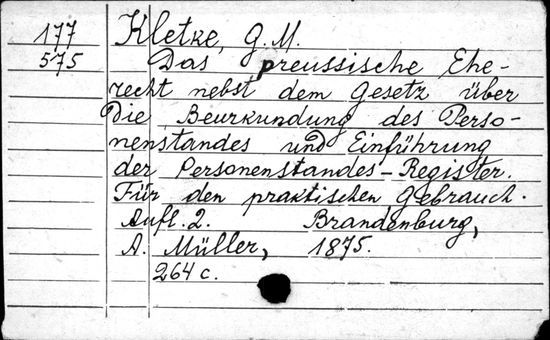 177 Kletke, G. M.
575 Das preussische Ehe-
recht nebst dem Gesetz über
die Beurkundung des Perso-
nenstandes und Einführung
der Personenstandes-Register.
Für den praktischen Gebrauch.
Aufl. 2. Brandenburg,
A. Müller, 1875.
264 c.